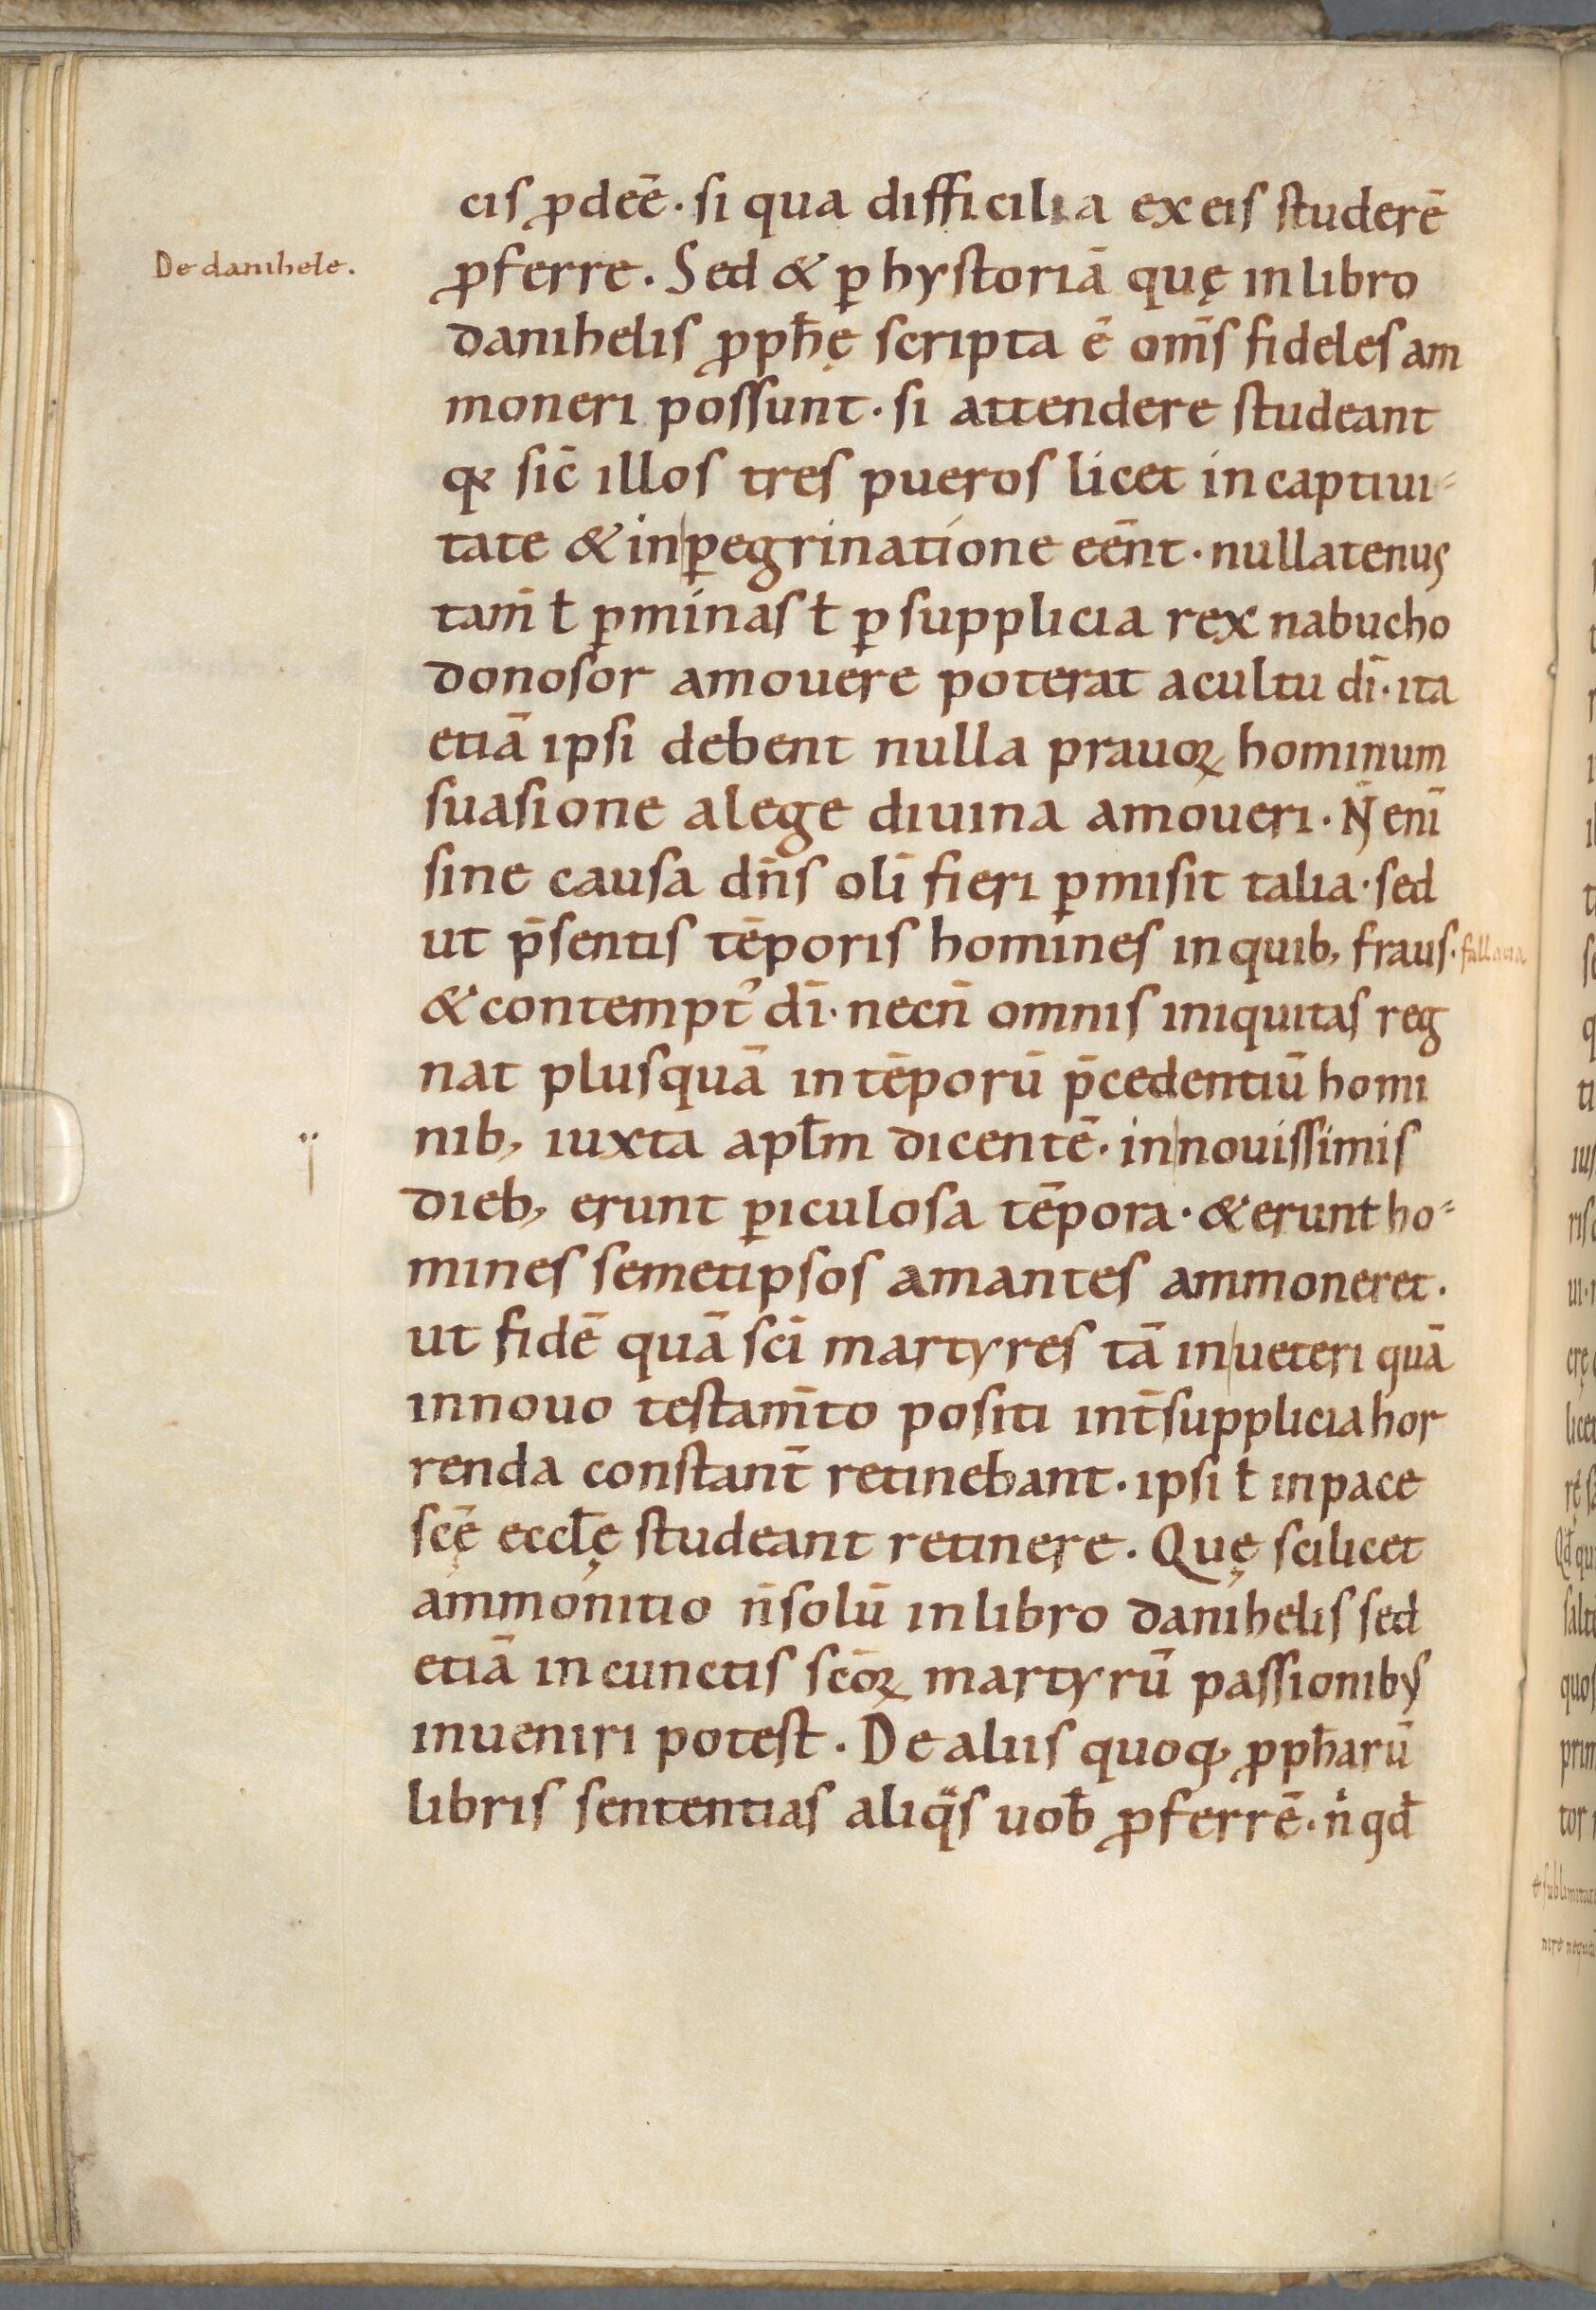 cis ꝓdeē · si qua difficilia ex eis studerē
De danihele.
ꝓferre. Sed & ꝑ hystoriā quę in libro
danihelis ꝓph̄ę scripta ē om̄s fideles am
moneri possunt · si attendere studeant
qđ sic̄ illos tres pueros licet in captiui-
tate & in ꝑegrinatione eēnt · nullatenus
tam̄ ƚ ꝑ minas ƚ ꝑ supplicia rex nabucho
donosor amouere poterat a cultu dī · ita
etiā ipsi debent nulla prauoꝝ hominum
suasione a lege diuina amoueri · N̄ enī
sine causa dn̄s olī fieri ꝑmisit talia · sed
ut p̄sentis tēporis homines in quib; fraus · fallacia
& contempt᾽ dī · necn̄ omnis iniquitas reg
nat plusquā in tēporū p̄cedentiū homi
nib; iuxta apƚm dicentē · in nouissimis
dieb; erunt ꝑiculosa tēpora · & erunt ho-
mines semetipsos amantes ammoneret ·
ut fidē quā sc̄i martyres tā in ueteri quā
in nouo testam̄to positi int̄ supplicia hor
renda constant̄ retinebant · ipsi ƚ in pace
sc̄ę eccƚę studeant retinere. Quę scilicet
ammonitio n̄ solū in libro danihelis sed
etiā in cunctis sc̄oꝝ martyrū passionibus
inueniri potest. De aliis quoq; ꝓph̄arū
libris sententias aliq̄s uob̄ ꝓferrē · n̄ qđ